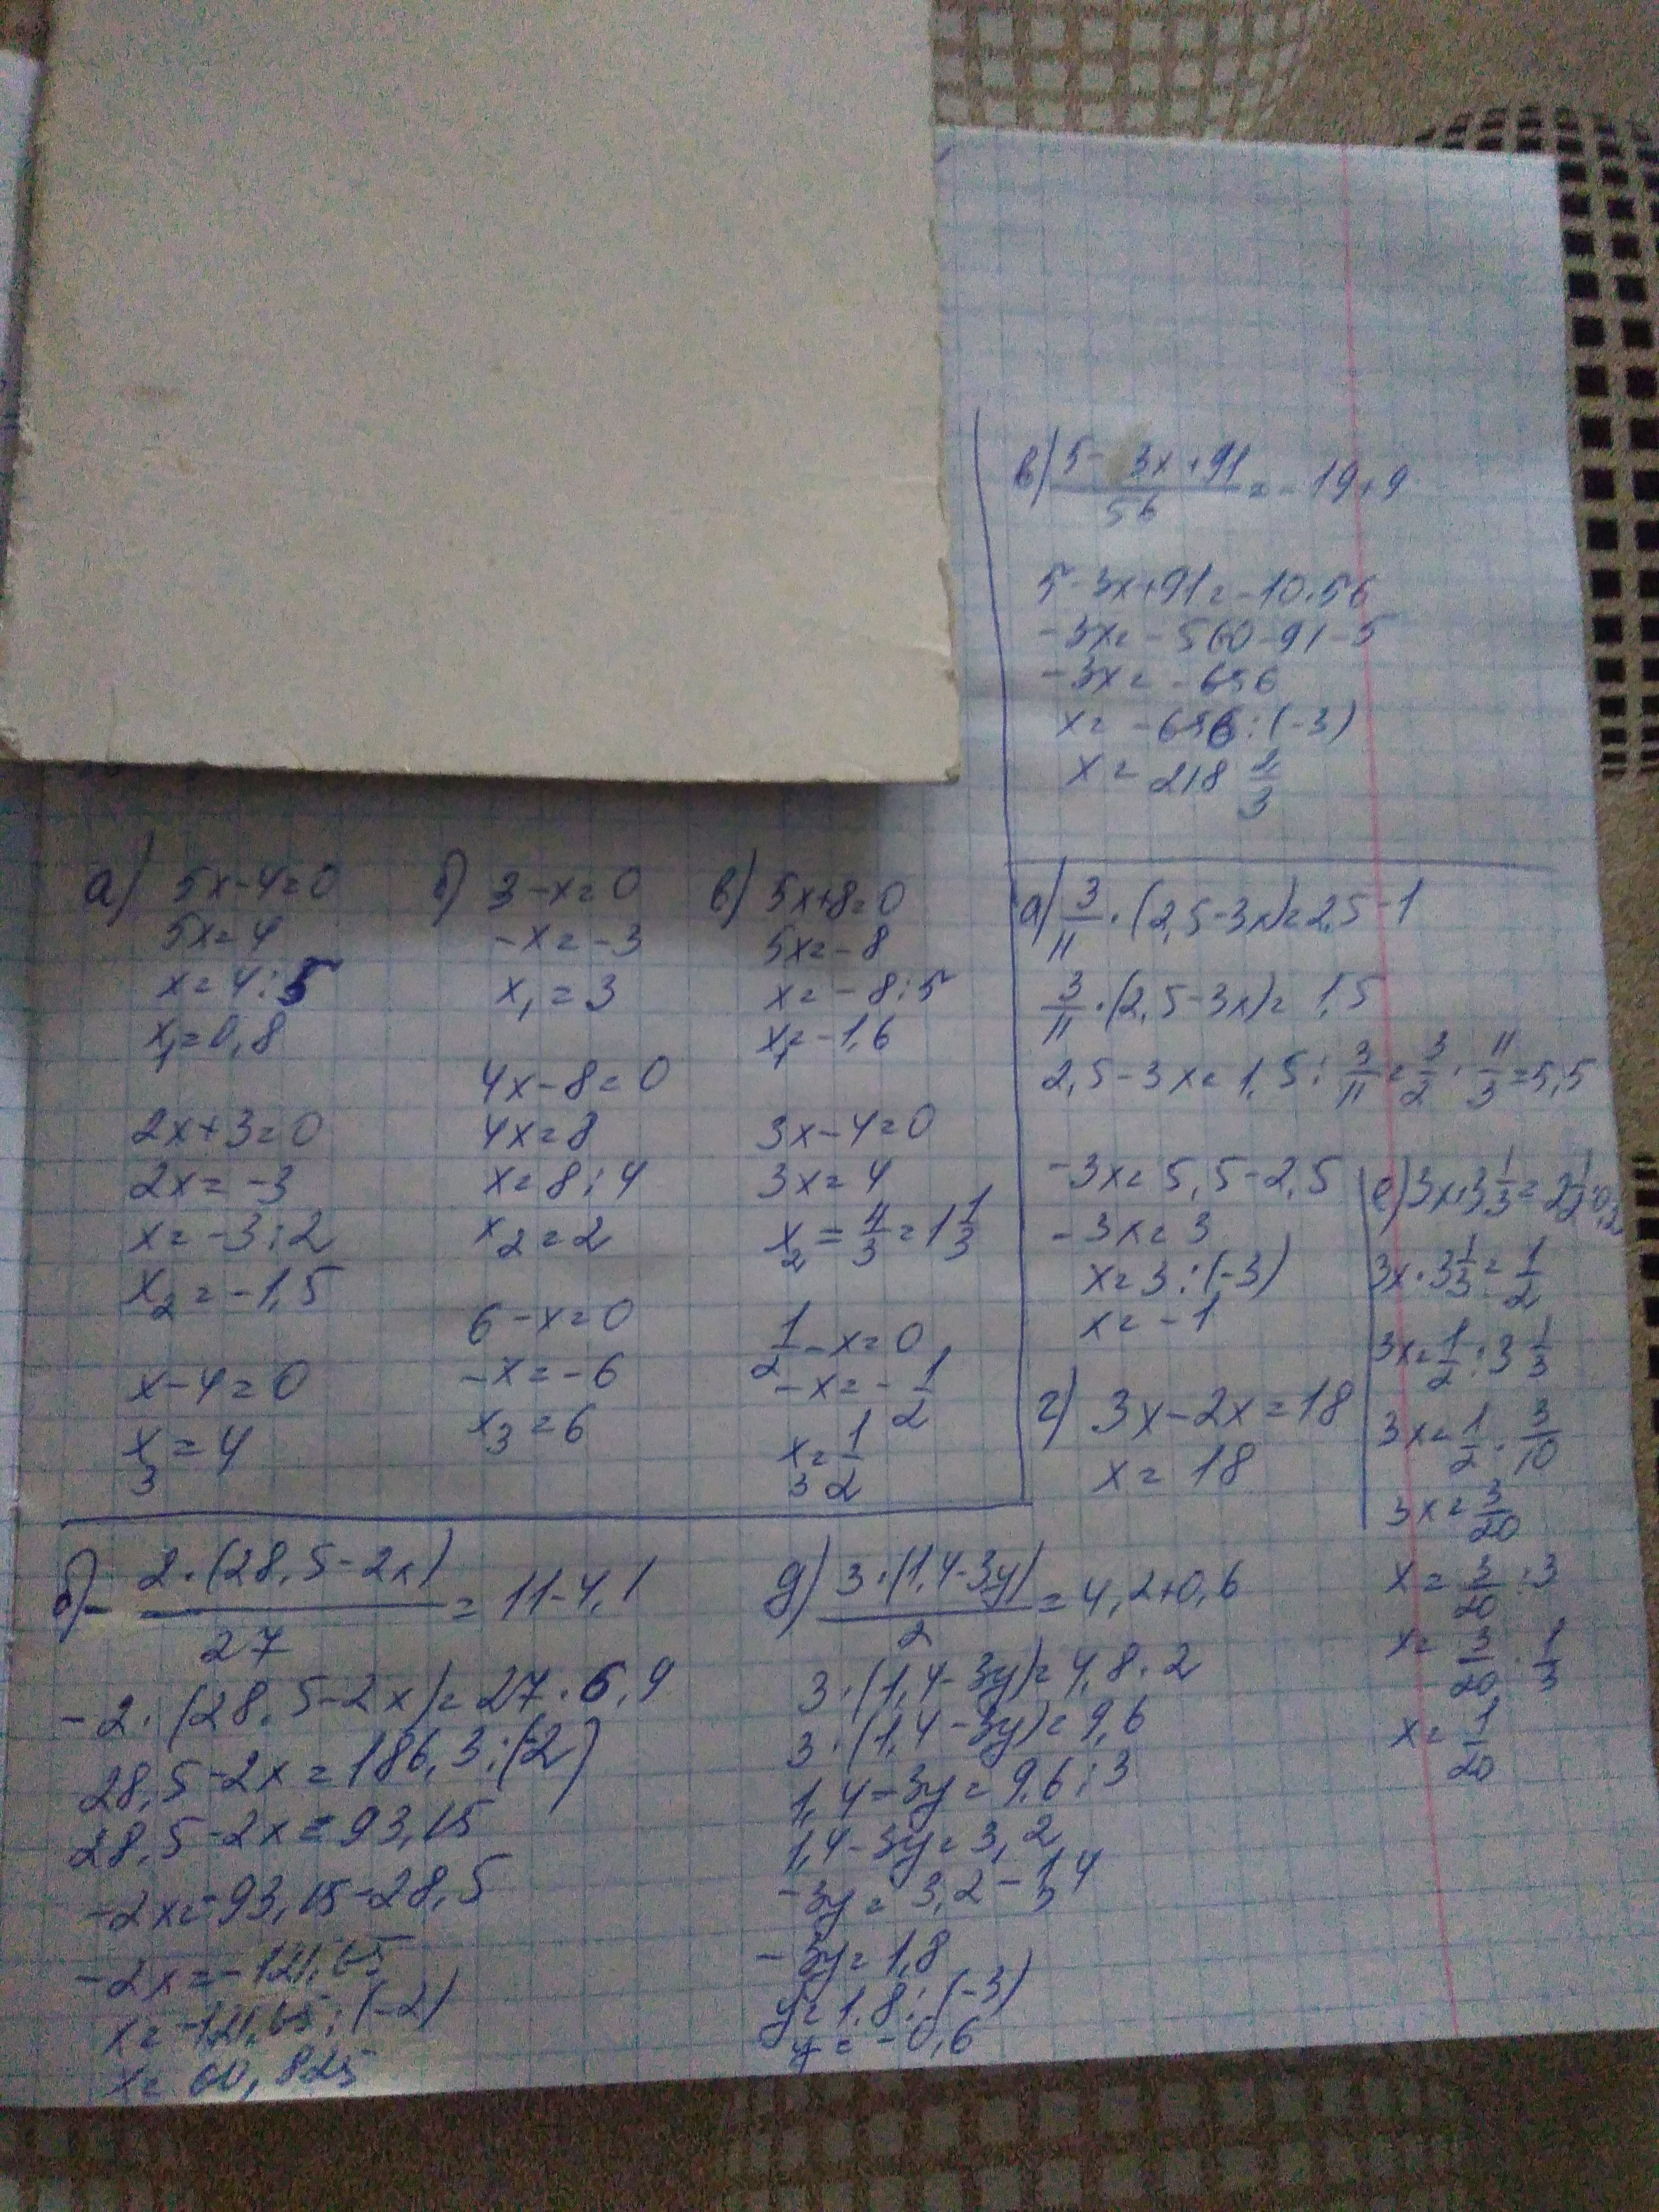 а) 5x-4=0
5x=4
x=4:5
x₁=0,8
2x+3=0
2x=-3
x=-3:2
x₂=-1,5
x-4=0
x₃=4
б) 3-x=0
-x=-3
x₁=3
4x-8=0
4x=8
x=8:4
x₂=2
6-x=0
-x=-6
x₃=6
в) 5x+8=0
5x=-8
x=-8:5
x₁=-1,6
3x-4=0
3x=4
x₂=4/3=1 1/3
1/2-x=0
-x=-1/2
x₃=1/2
в) (5-3x+91)/56=-19+9
5-3x+91=-10·56
-3x=-560-91-5
-3x=-656
x=-656:(-3)
x=218 2/3
а) 3/11·(2,5-3x)=2,5-1
3/11·(2,5-3x)=1,5
2,5-3x=1,5:3/11=3/2·11/3=5,5
-3x=5,5-2,5
-3x=3
x=3:(-3)
x=-1
г) 3x-2x=18
x=18
е) 3x·3 1/3=2 1/2·0,2
3x·3 1/3=1/2
3x=1/2:3 1/3
3x=1/2·3/10
3x=3/20
x=3/20:3
x=3/20·1/3
x=1/20
б) -2·(28,5-2x)/27=11-4,1
-2·(28,5-2x)=27·6,9
28,5-2x=186,3:(-2)
28,5-2x=93,15
-2x=-93,15-28,5
-2x=-121,65
x=-121,65:(-2)
x=60,825
д) 3·(1,4-3y)/2=4,2+0,6
3·(1,4-3y)=4,8·2
3·(1,4-3y)=9,6
1,4-3y=9,6:3
1,4-3y=3,2
-3y=3,2-1,4
-3y=1,8
y=1,8:(-3)
y=-0,6